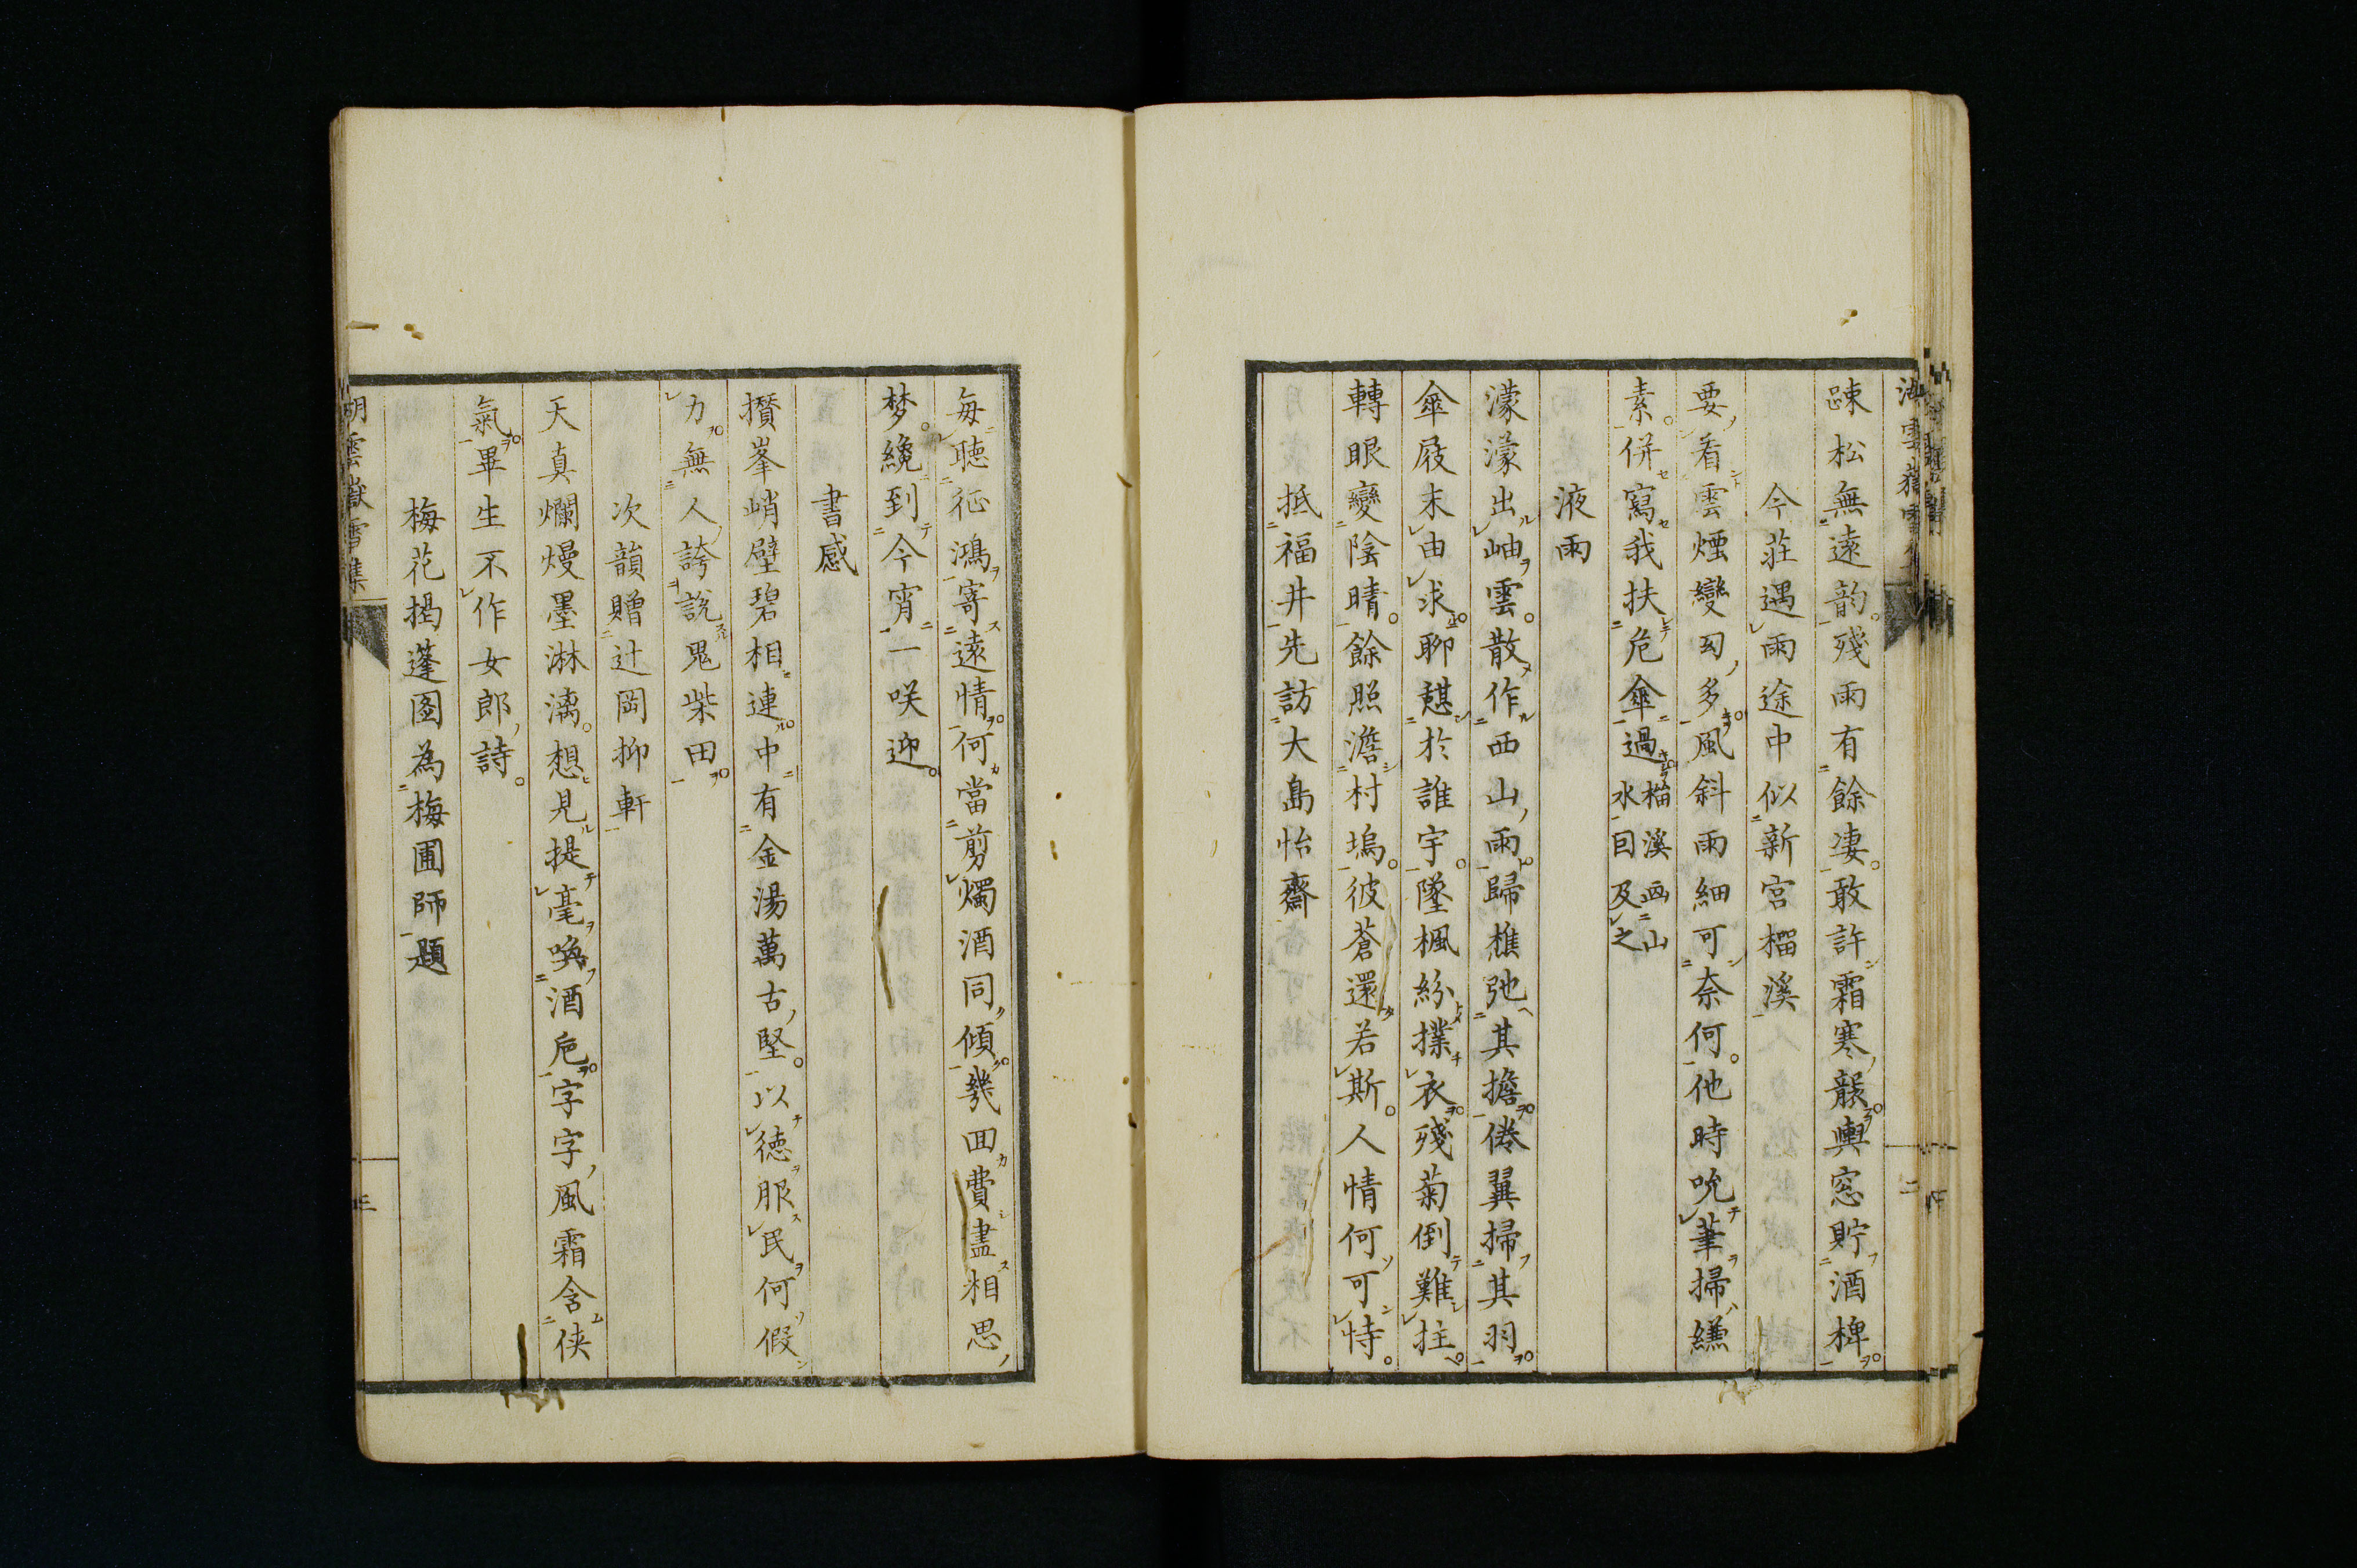 踈松無遠韵殘雨有餘凄敢許霜寒襲輿窓貯酒椑
今莊遇雨途中似新宮橊溪
要看雲煙變幻多風斜雨細可奈何他時吮筆掃縑
素併寫我扶危傘過橊溪画山水回及之
液雨
濛濛出岫雲散作西山雨歸樵弛其擔倦翼掃其羽
傘屐末由求聊憇於誰宇墜楓紛撲衣殘菊倒難拄
轉眼變陰晴餘照澹村塢彼蒼還若斯人情何可恃
抵福井先訪大島怡齋
毎聽征鴻寄遠情何當剪燭酒同傾幾回費盡相思
梦纔到今宵一咲迎
書感
攅峯峭壁碧相連中有金湯萬古堅以德服民何假
力無人誇說鬼柴田
次韻贈辻岡抑軒
天真爛熳墨淋漓想見提毫喚酒巵字字風霜含俠
氣畢生不作女郎詩
梅花揭蓬图為梅圃師題
湖雲嶽雪集
三